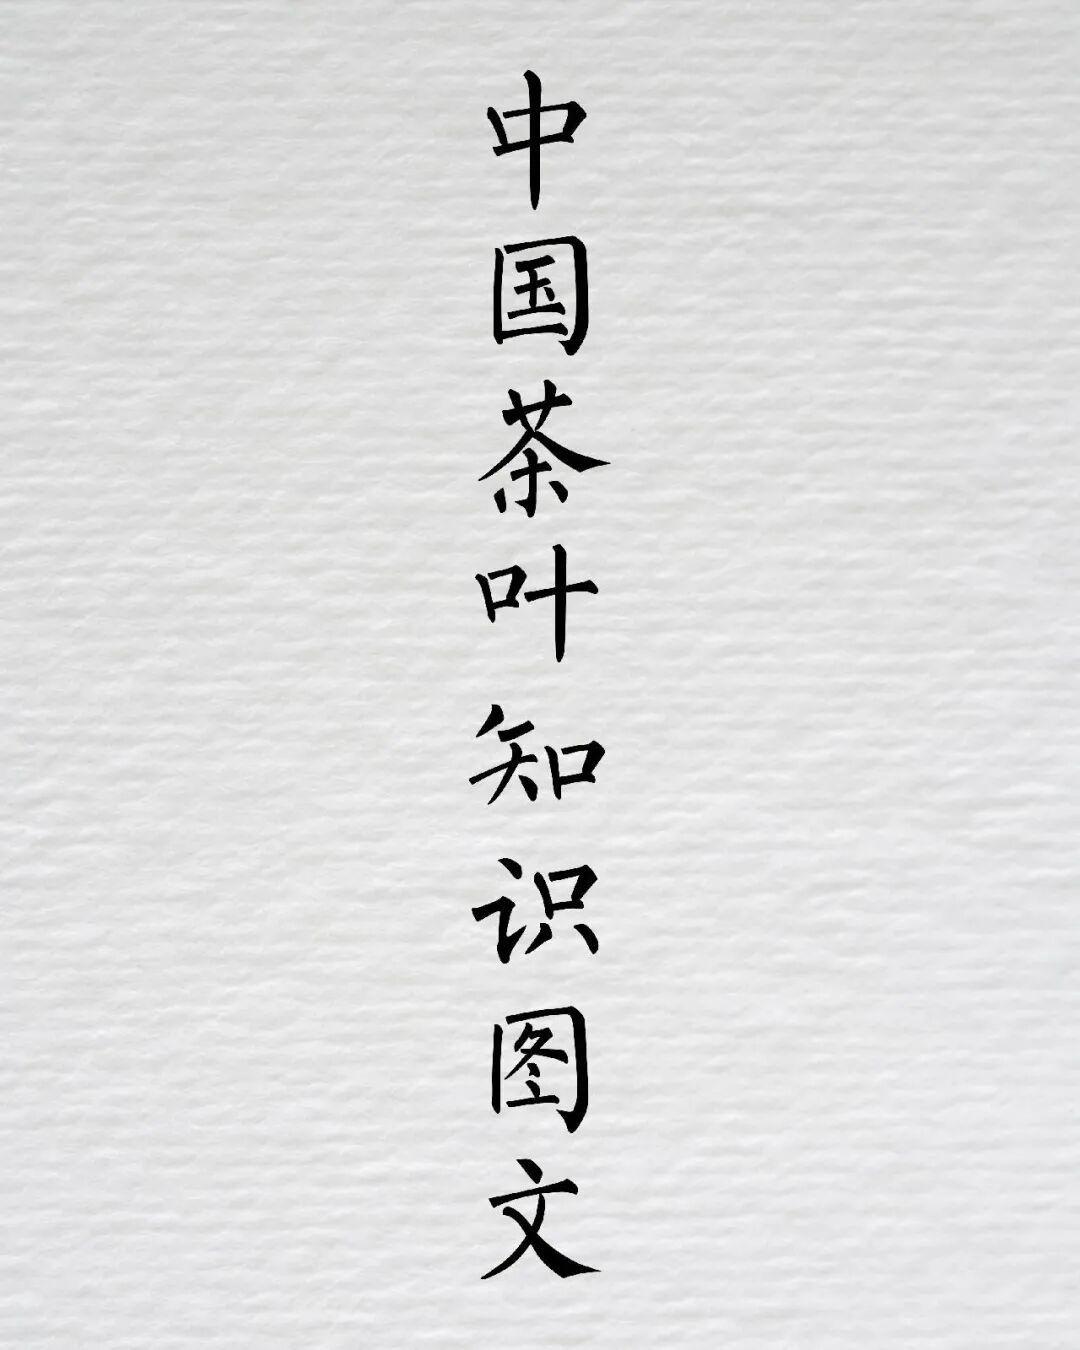 中国茶叶知识图文